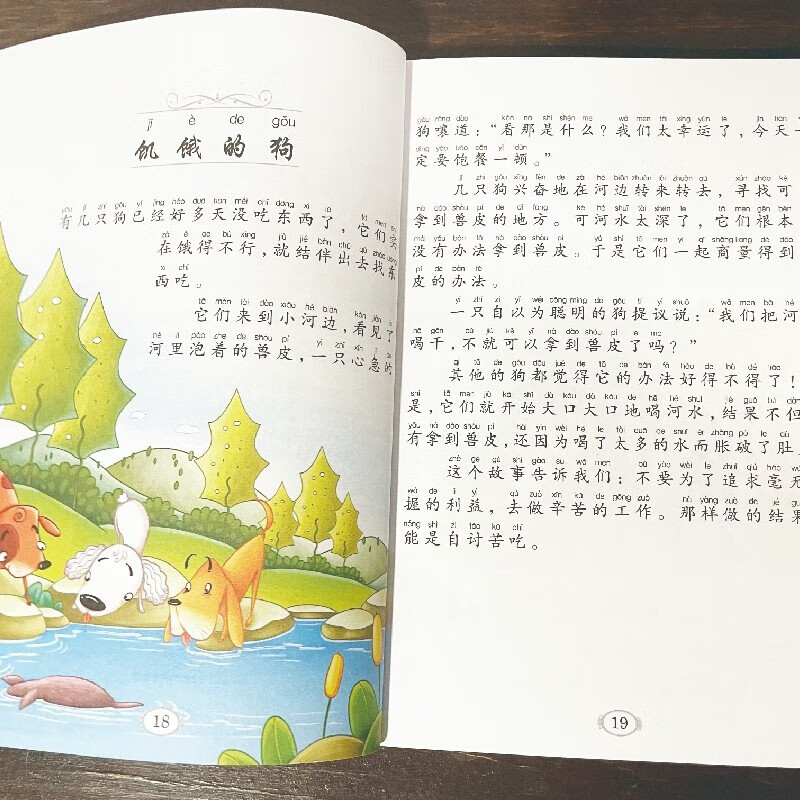 jī è de gǒu
饥饿的狗
有几只狗已经好多天没吃东西了，它们实
在饿得不行，就结伴出去找东
西吃。
它们来到小河边，看见了
河里泡着的兽皮，一只心急的
18
狗嚷道：“看那是什么？我们太幸运了，今天一
定要饱餐一顿。”
几只狗兴奋地在河边转来转去，寻找可
拿到兽皮的地方。可河水太深了，它们根本
没有办法拿到兽皮。于是它们一起商量得到
皮的办法。
一只自以为聪明的狗提议说：“我们把河
喝干，不就可以拿到兽皮了吗？”
其他的狗都觉得它的办法好得不得了！
是，它们就开始大口大口地喝河水，结果不但
有拿到兽皮，还因为喝了太多的水而胀破了肚
这个故事告诉我们：不要为了追求毫无
握的利益，去做辛苦的工作。那样做的结果
能是自讨苦吃。
19